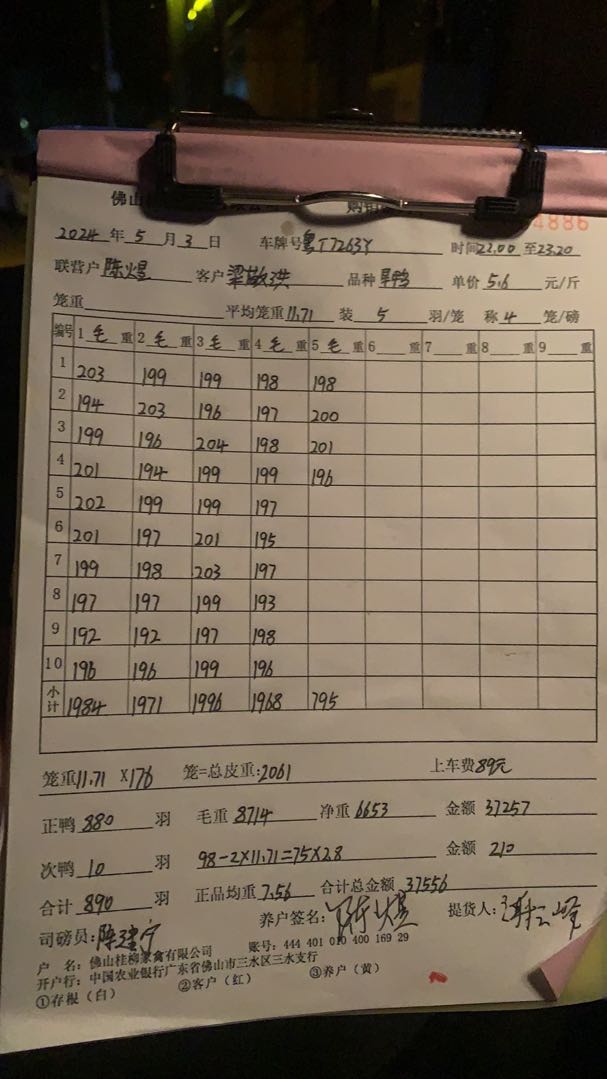 佛山
4886
2024 年 5 月 3 日 车牌号 粤T7263Y 时间 22.00 至 23.20
联营户 陈煜 客户 梁敬洪 品种 旱鸭 单价 5.6 元/斤
笼重 平均笼重 11.71 装 5 羽/笼 称 4 笼/磅
编号 1 毛 重 2 毛 重 3 毛 重 4 毛 重 5 毛 重 6 重 7 重 8 重 9 重
1 203 199 199 198 198
2 194 203 196 197 200
3 199 196 204 198 201
4 201 194 199 199 196
5 202 199 199 197
6 201 197 201 195
7 199 198 203 197
8 197 197 199 193
9 192 192 197 198
10 196 196 199 196
小计 1984 1971 1996 1968 795
笼重 11.71 X176 笼=总皮重: 2061 上车费 89元
正鸭 880 羽 毛重 8714 净重 6653 金额 37257
次鸭 10 羽 98-2X11.71=75X2.8 金额 210
合计 890 羽 正品均重 7.56 合计总金额 37556
司磅员: 陈建宁 养户签名: 陈煜 提货人:
户 名: 佛山桂柳家禽有限公司 账号: 444 401 010 400 169 29
开户行: 中国农业银行广东省佛山市三水区三水支行
①存根（白） ②客户（红） ③养户（黄）